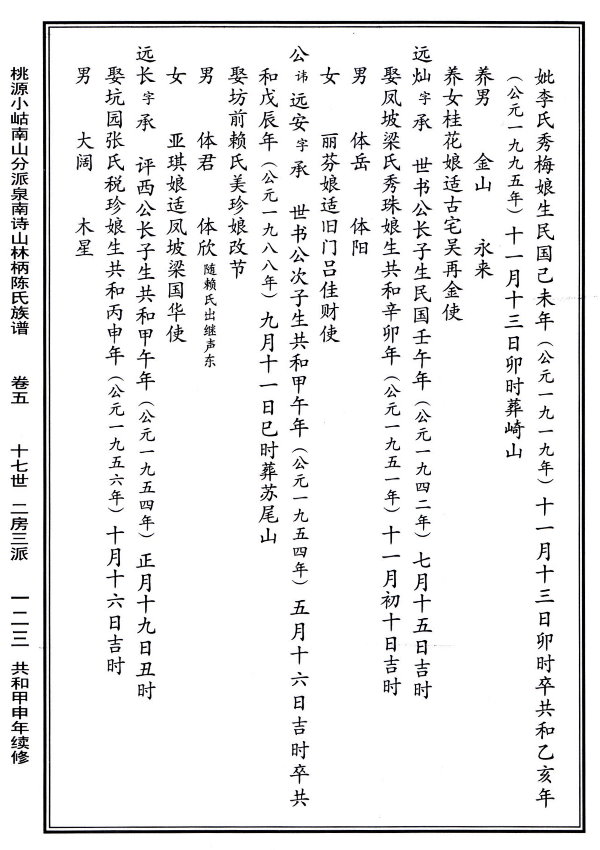 妣李氏秀梅娘生民国己未年（公元一九一九年）十一月十三日卯时卒共和乙亥年
（公元一九九五年）十一月十三日卯时葬崎山
养男 金山 永来
养女桂花娘适古宅吴再金使
远灿字承 世书公长子生民国壬午年（公元一九四二年）七月十五日吉时
娶凤坡梁氏秀珠娘生共和辛卯年（公元一九五一年）十一月初十日吉时
男 体岳 体阳
女 丽芬娘适旧门吕佳财使
公讳远安字承 世书公次子生共和甲午年（公元一九五四年）五月十六日吉时卒共
和戊辰年（公元一九八八年）九月十一日巳时葬苏尾山
娶坊前赖氏美珍娘改节
男 体君 体欣随赖氏出继声东
女 亚琪娘适凤坡梁国华使
远长字承 评西公长子生共和甲午年（公元一九五四年）正月十九日丑时
娶坑园张氏税珍娘生共和丙申年（公元一九五六年）十月十六日吉时
男 大阔 木星
桃源小岵南山分派泉南诗山林柄陈氏族谱 卷五 十七世 二房三派 一二三 共和甲申年续修